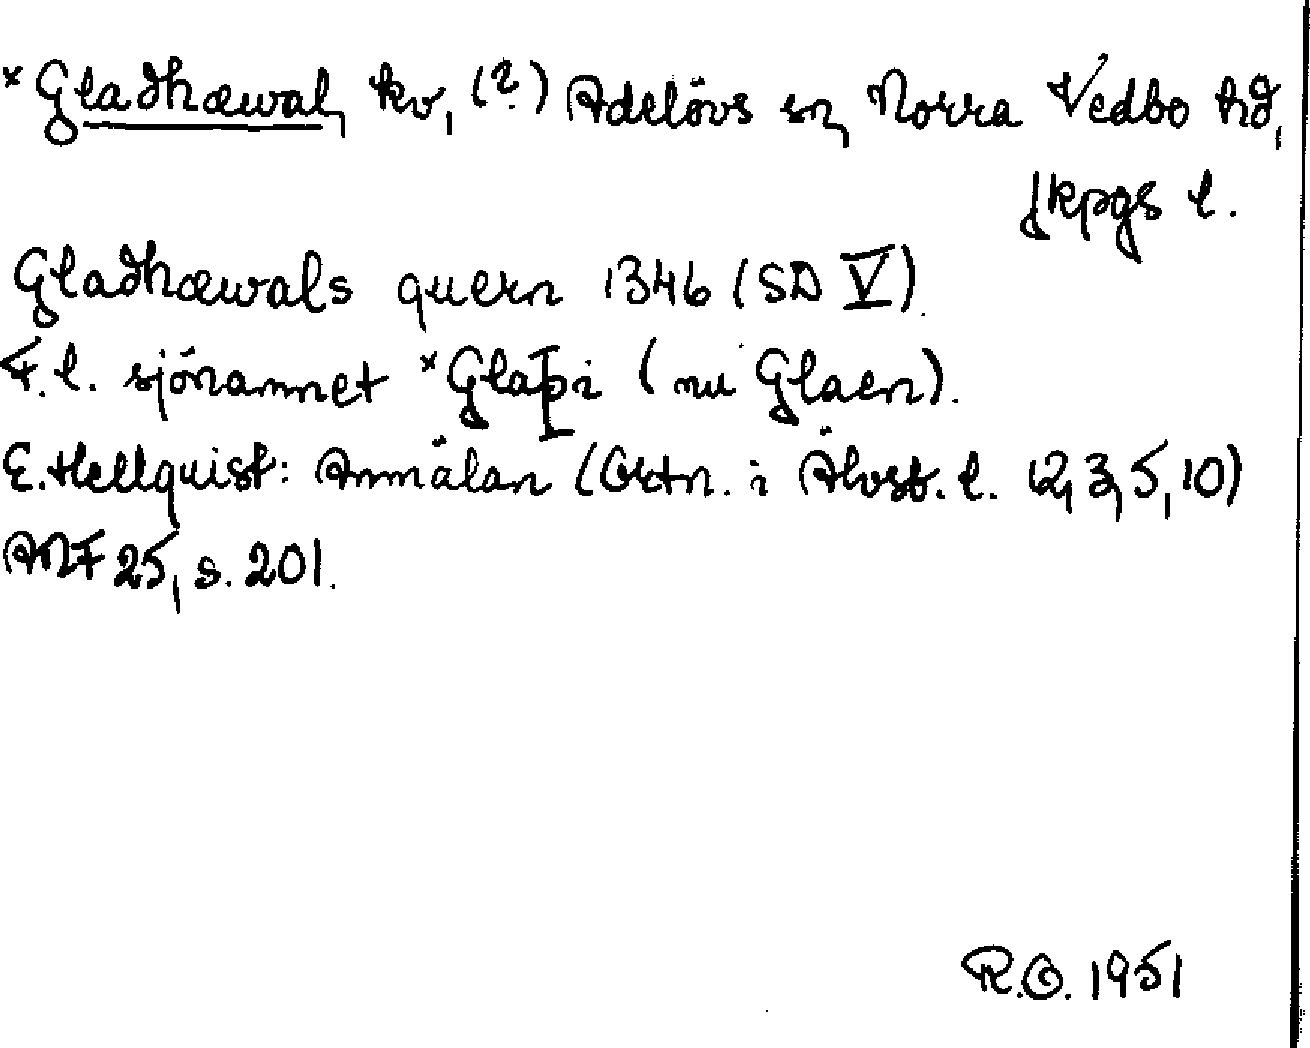 *Gladhæwal, kv, (?) Adelövs sn, Norra Vedbo hd,
Jkpgs l.
Gladhæwals quern 1346 (SD V).
F.l. sjönamnet *Glaþi (nu Glaen).
E. Hellquist: Anmälan (Ortn. i Älvsb. l. 12, 3, 5, 10)
ANF 25, s. 201.
R.O. 1951